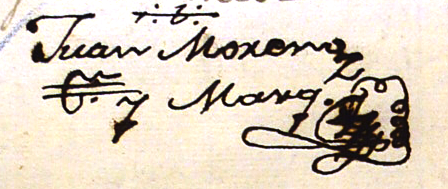 Juan Moreno
y Marq.z